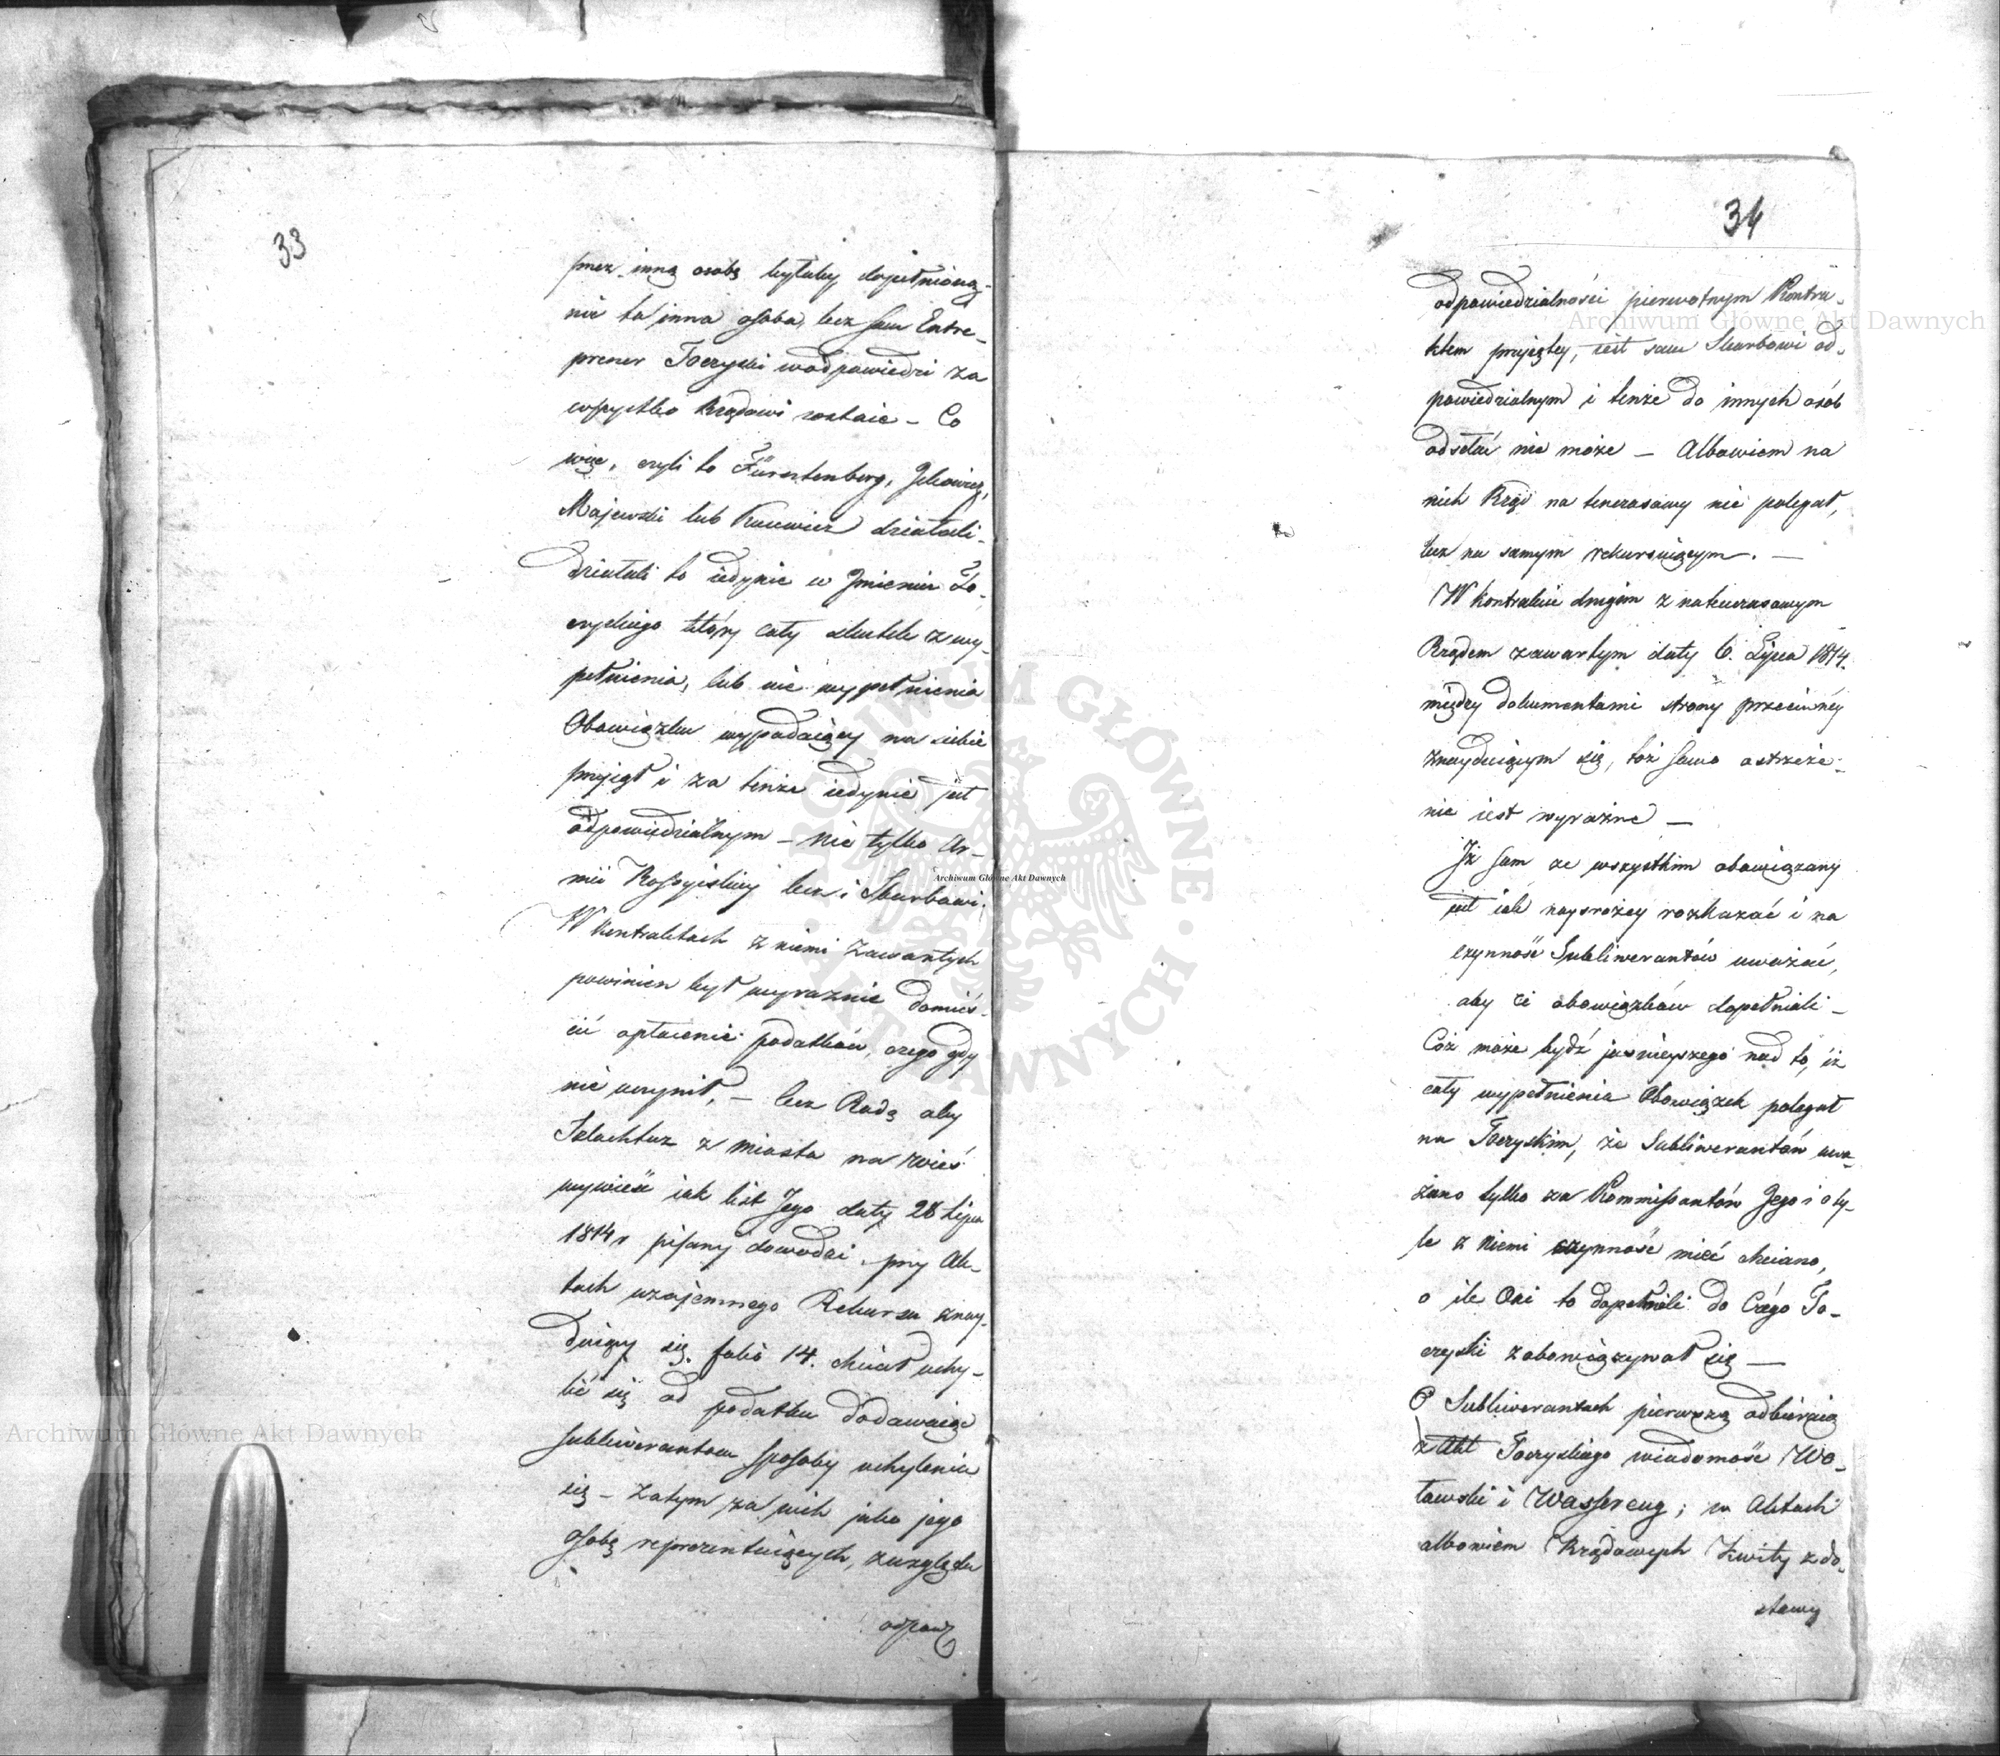 33
przez inną osobę byłaby dopełnioną,
nie ta inna osoba, lecz sam Entre-
prener Toczyski w odpowiedzi za
wszystko Rządowi zostaie – Co
więc, czyli to Fürstenberg,
Majewski lub działali
działali to iedynie w Jmieniu To-
czyskiego który cały skutek z wy-
pełnienia, lub nie wypełnienia
Obowiązku wypadaiący na siebie
przyiął i za tenże iedynie jest
odpowiedzialnym – nie tylko Ar-
mii Rossyiskiey lecz i Skarbowi.
W Kontraktach z niemi zawartych
powinien był wyraznie domieś-
cić opłacenie podatków, czego gdy
nie uczynił, – lecz Radą aby
Szlachtuz z miasta na wieś
wynieść iak list Jego daty 28 Lipca
1814 r pisany dowodzi, przy Ak-
tach wzajemnego Rekursu znay-
duiący się folio 14. chciał uchy-
lić się od podatku dodawaiąc
subliwerantom sposoby uchylenia
się – Zatym za nich jako jego
osobę reprezentuiących, względu
odpow
34
odpowiedzialności pierwotnym Kontra-
ktem przyiętey, iest sam Skarbowi od-
powiedzialnym i tenże do innych osób
odsełać nie może – Albowiem na
nich Rząd na tenczasowy nie polegał,
lecz na samym rekursuiącym. –
W kontrakcie drugim z natenczasowym
Rządem zawartym daty 6. Lipca 1814.
między dokumentami strony przeciwnéy
znayduiącym się, toż samo ostrzeże-
nie iest wyraźne –
Jż sam ze wszystkim obowiązany
jest iak naysrożey rozkazać i na
czynność Subliwerantów uważać,
aby ci obowiązków dopełniali –
Cóż może bydź jasnieyszego nad to, iż
cały wypełnienia Obowiązek polegał
na Toczyskim, że Subliwerantów uwa-
żano tylko za Kommissantów Jego i o ty-
le z niemi czynność mieć chciano,
o ile Oni to dopełnili do Czego To-
czyski zobowiązywał się –
O Subliwerantach pierwszą odbieraią
z Akt Toczyskiego wiadomość Wo-
ławski i Wassercug; w Aktach
albowiem Rządowych Kwity z do-
stawy
Archiwum Główne Akt Dawnych
Archiwum Główne Akt Dawnych
Archiwum Główne Akt Dawnych
ARCHIWUM GŁÓWNE · AKT DAWNYCH ·